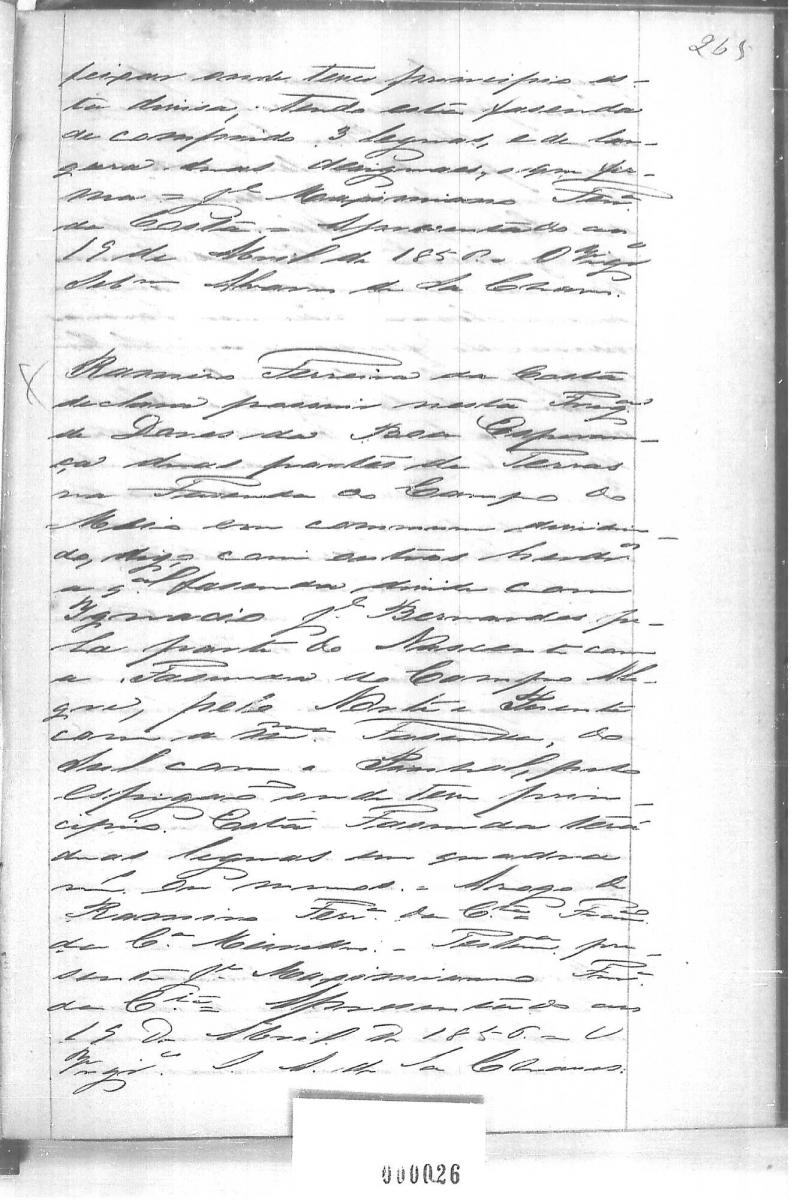 265
cipar onde teve principio es-
ta divisa, tendo esta fasenda
de comprido 3 legoas, e de lar-
gura duas
ma = Je Maximiano Ferra
da Costa = Apresentado aos
19 de Abril de 1856. O Vigro
Sebm Alvares de Sa Chaves.
Ramiro Ferreira da Costa
declara possuir nesta Fregª
de Dores da Boa Esperan-
ça duas partes de Terras
na Fazenda do Campo do
Meio em commum dividin-
do, digo, com outros herdros
a ql fasenda divide com
Ygnacio Je Bernardes pe-
la parte do Nascente com
a Fasenda do Campo Ale-
gre, pelo Norte e Poente
com a mma Fasenda, do
Sul com o pelo
espigão onde tem prin-
cipio. Esta Fasenda terá
duas legoas em quadra
ms ou menos. = Arogo de
Ramiro Ferra da Cta Franco
da Ca Meirelles. = Testa pre-
sente Je Maximiano Ferra
da Cta = Apresentado aos
19 de Abril de 1856. = O
Vigro S. A. de Sa Chaves.
000026